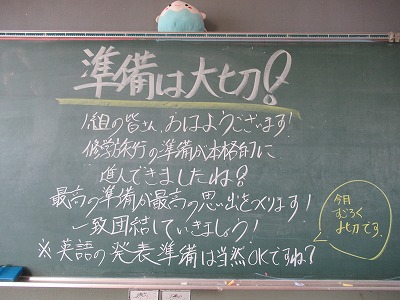 準備は大切!
1組の皆さん、おはようございます!
修学旅行の準備が本格的に
進んできましたね!
最高の準備が最高の思い出をつくります!
一致団結していきましょう!
※英語の発表準備は当然OKですね?
今月
すごろく
大切です。